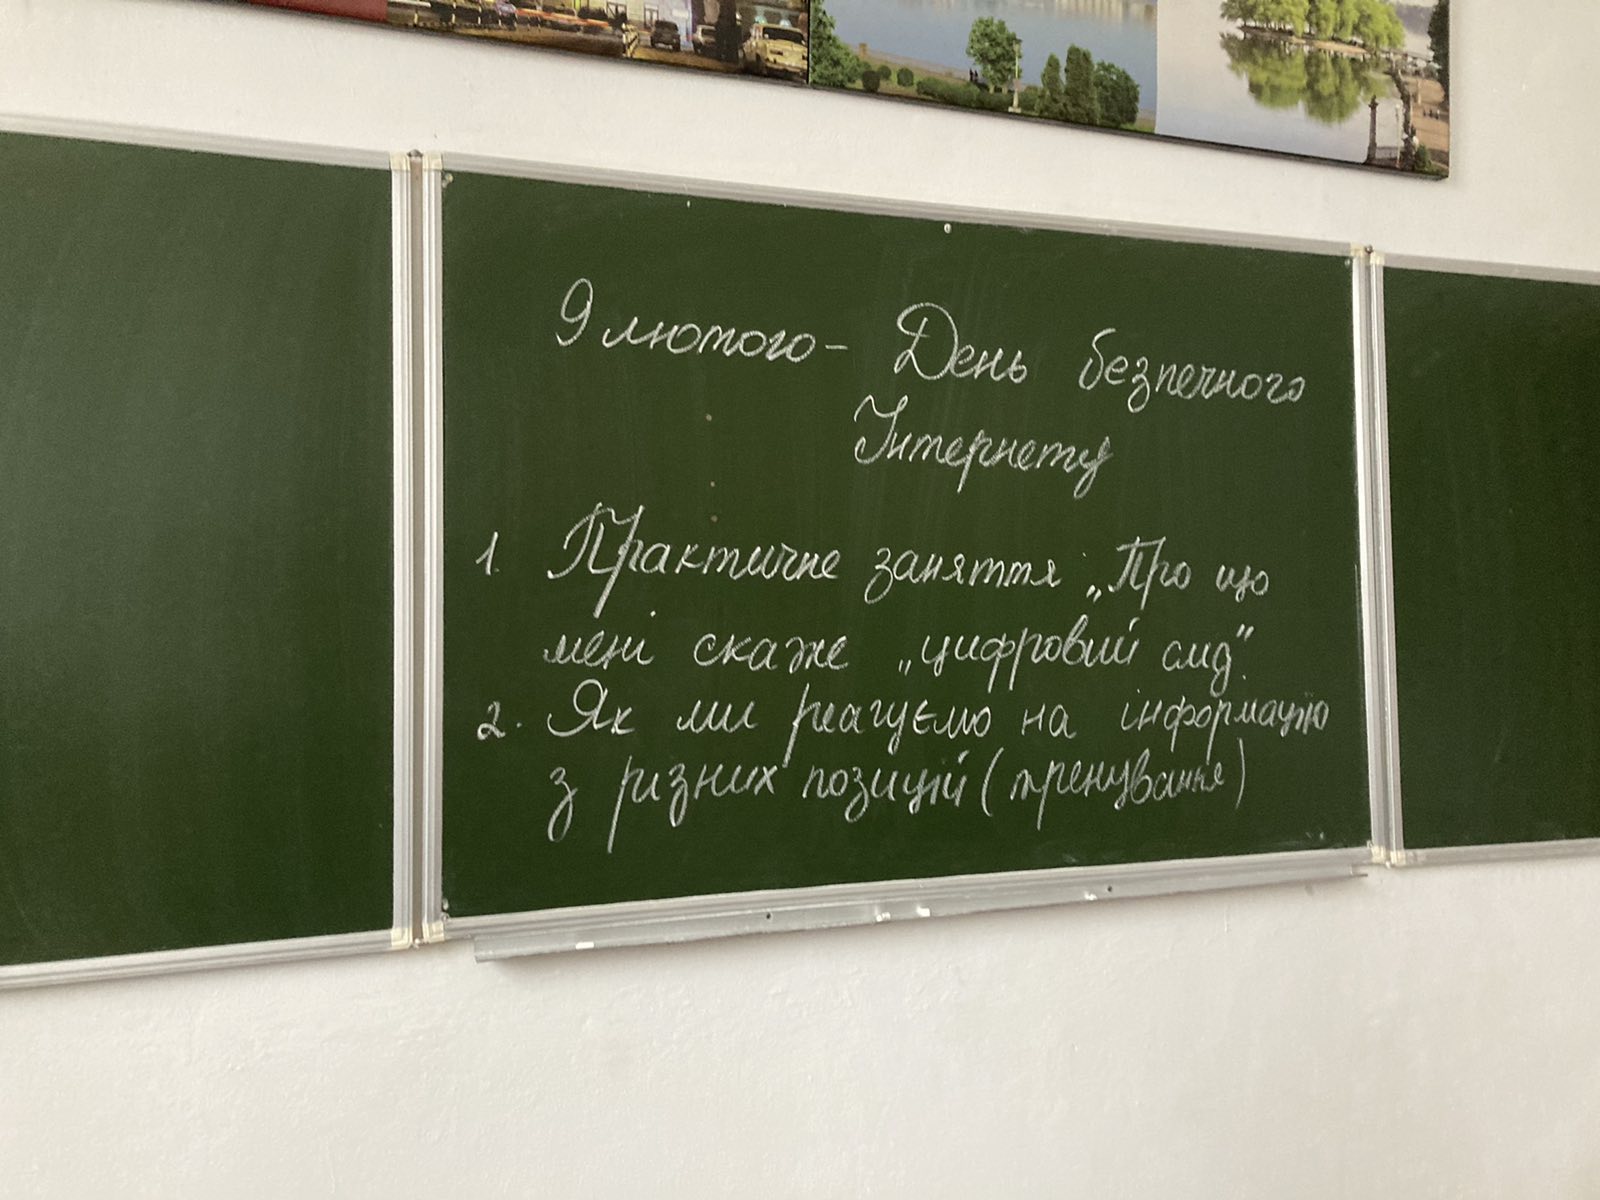 9 лютого - День безпечного
Інтернету
1. Практичне заняття „Про що
мені скаже „цифровий слід"
2. Як ми реагуємо на інформацію
з різних позицій (тренування)